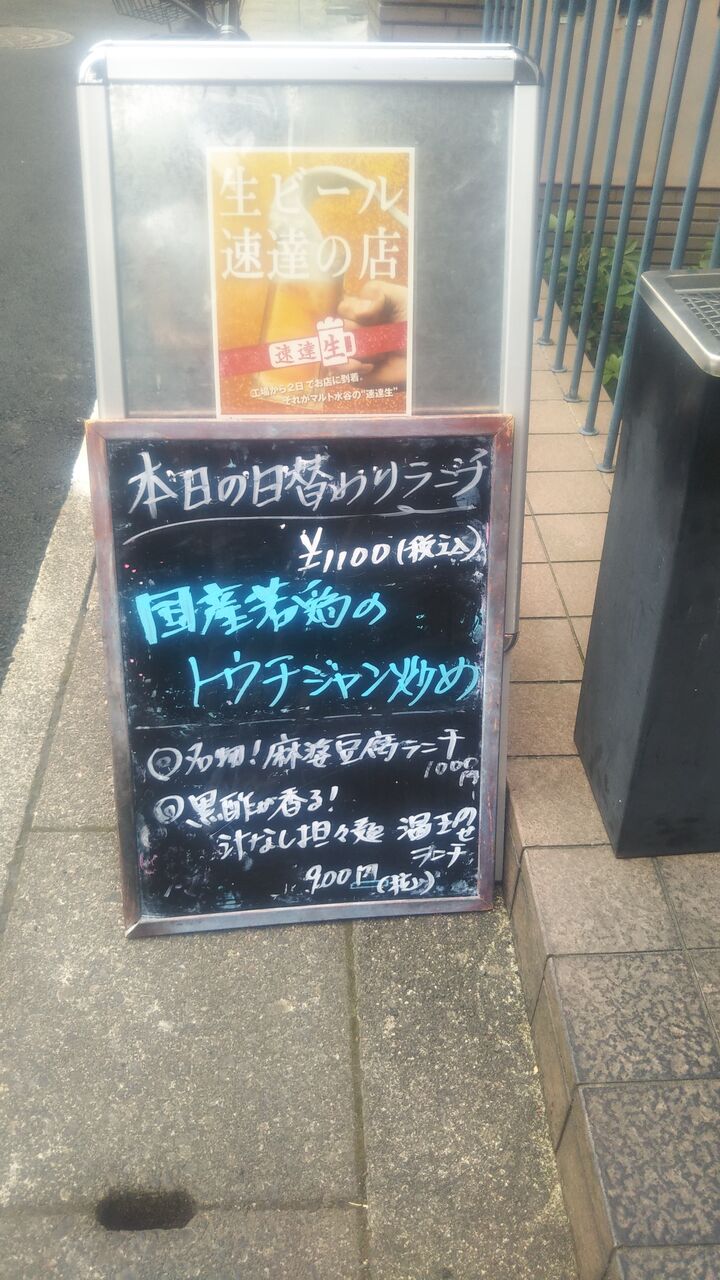 生ビール
速達の店
速達生
工場から2日でお店に到着。
それがマルト水谷の"速達生"
本日の日替わりランチ
¥1100(税込)
国産若鶏の
トウチジャン炒め
◎名物!麻婆豆腐ランチ
1000円
◎黒酢が香る!
汁なし担々麺 温玉のせ
ランチ
900円(税込)